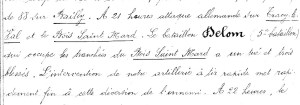 de 88 sur Bailly. A 21 heures attaque allemande sur Tracy le
Val et le Bois Saint Mard. Le bataillon Delom (5e bataillon)
qui occupe les tranchées du Bois Saint Mard a un tué et trois
blessés. L'intervention de notre artillerie à tir rapide met rapi-
dement fin à cette diversion de l'ennemi. A 22 heures, le